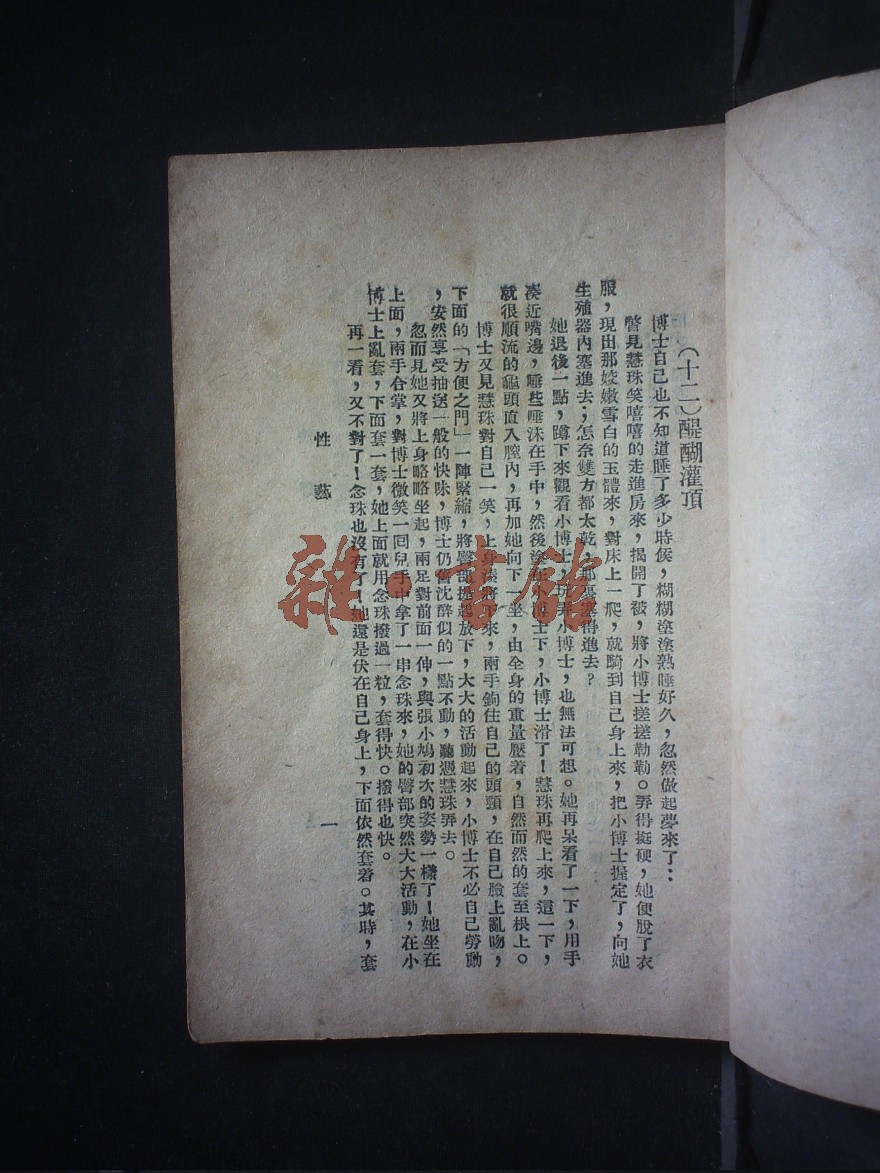 (十二)醍醐灌頂
博士自己也不知道睡了多少時候，糊糊塗塗熟睡好久，忽然做起夢來了：
瞥見慧珠笑嘻嘻的走進房來，揭開了被，將小博士搓搓勒勒。弄得挺硬，她便脫了衣
服，現出那姣嫩雪白的玉體來，對床上一爬，就騎到自己身上來，把小博士握定了，向她
生殖器內塞進去；怎奈雙方都太乾，那裏塞得進去？
她退後一點，蹲下來觀看小博士，玩弄小博士，也無法可想。她再呆看了一下，用手
湊近嘴邊，唾些唾沬在手中，然後塗在小博士下，小博士滑了！慧珠再爬上來，這一下，
就很順流的龜頭直入膣內，再加她向下一坐，由全身的重量壓着，自然而然的套至根上。
博士又見慧珠對自己一笑，上身湊將下來，兩手鉤住自己的頭頸，在自己臉上亂吻，
下面的「方便之門」一陣緊縮，將臀部提起放下，大大的活動起來，小博士不必自己勞動
，安然享受抽送一般的快味，博士仍舊沈醉似的一點不動，聽憑慧珠弄去。
忽而見她又將上身略略坐起，兩足對前面一伸，與張小鳩初次的姿勢一樣了！她坐在
上面，兩手合掌，對博士微笑一回兒手中拿了一串念珠來，她的臀部突然大大活動，在小
博士上亂套，下面套一套，她上面就用念珠撥過一粒，套得快。撥得也快。
再一看，又不對了！念珠也沒有了！她還是伏在自己身上，下面依然套着。其時，套
性藝
一
雜·書館